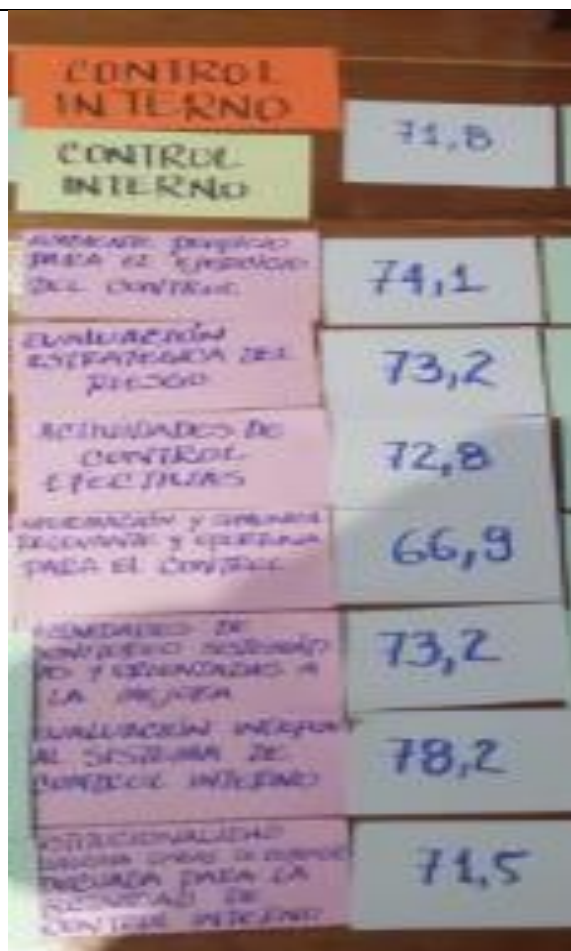 CONTROL
INTERNO
CONTROL
INTERNO
71,8
AMBIENTE PROPICIO
PARA EL EJERCICIO
DEL CONTROL
74,1
EVALUACIÓN
ESTRATEGICA DEL
RIESGO
73,2
ACTIVIDADES DE
CONTROL
EFECTIVAS
72,8
INFORMACIÓN Y
RELEVANTE Y OPORTUNA
PARA EL CONTROL
66,9
ACTIVIDADES DE
MONITOREO
Y ORIENTADAS A
LA MEJORA
73,2
EVALUACIÓN
AL SISTEMA DE
CONTROL INTERNO
78,2
LINEAS DE
ADECUADA PARA LA
DE
CONTROL INTERNO
71,5